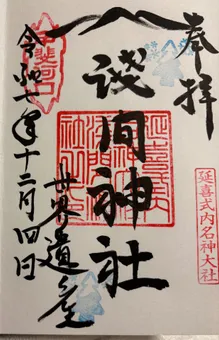 奉拝
延喜式内名神大社
淺間神社
世界遺産
甲斐河口
令和七年十二月四日